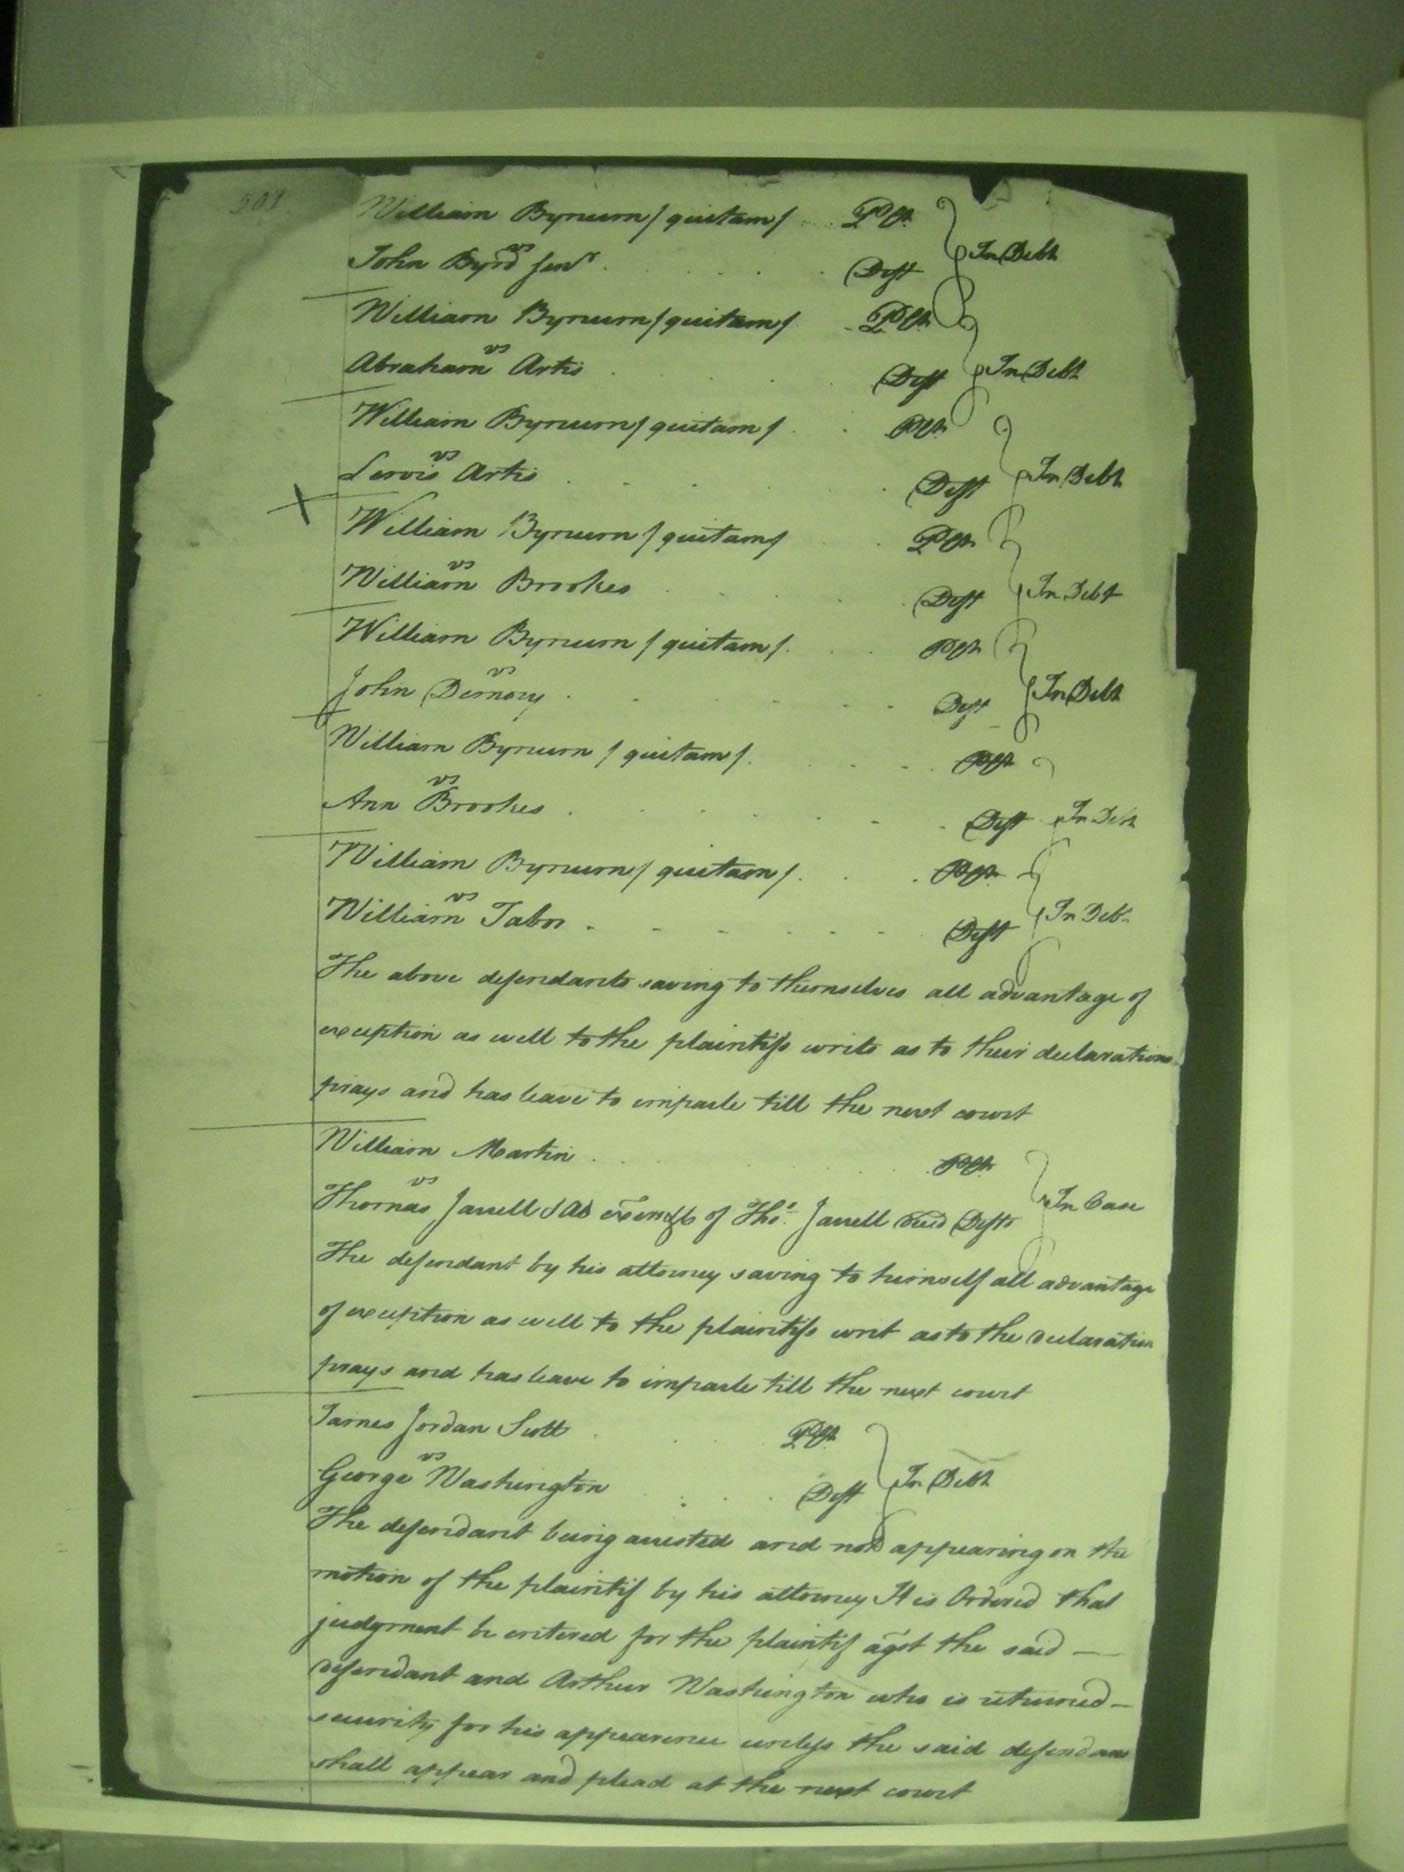 501
William Bynum / quitam / . . Plt.
vs
John Byrd senr . . . . . Deft
In Debt
William Bynum / quitam / . Plt
vs
Abraham Artis . . . . Deft
In Debt
William Bynum / quitam / . . Plt
vs
Lewis Artis . . . . . Deft
In Debt
X
William Bynum / quitam / . . Plt
vs
William Brookes . . . . . Deft
In Debt
William Bynum / quitam / . . . Plt
vs
John Demory . . . . . . Deft
In Debt
William Bynum / quitam / . . . Plt
vs
Ann Brookes . . . . . . Deft
In Debt
William Bynum / quitam / . . . Plt
vs
William Tabor . . . . . . Deft
In Debt
The above defendants saving to themselves all advantage of
exception as well to the plaintifs writs as to their declarations
prays and has leave to imparle till the next court
William Martin . . . . . Plt
vs
Thomas Jarrell &As of Thos. Jarrell decd Defts
In Case
The defendant by his attorney saving to himself all advantage
of exception as well to the plaintifs writ as to the declaration
prays and has leave to imparle till the next court
James Jordan Scott . . . Plt
vs
George Washington . . . . Deft
In Debt
The defendant being arrested and not appearing on the
motion of the plaintif by his attorney It is Ordered that
judgment be entered for the plaintif agst the said —
defendant and Arthur Washington who is returned —
security for his appearence unless the said defendant
shall appear and plead at the next court